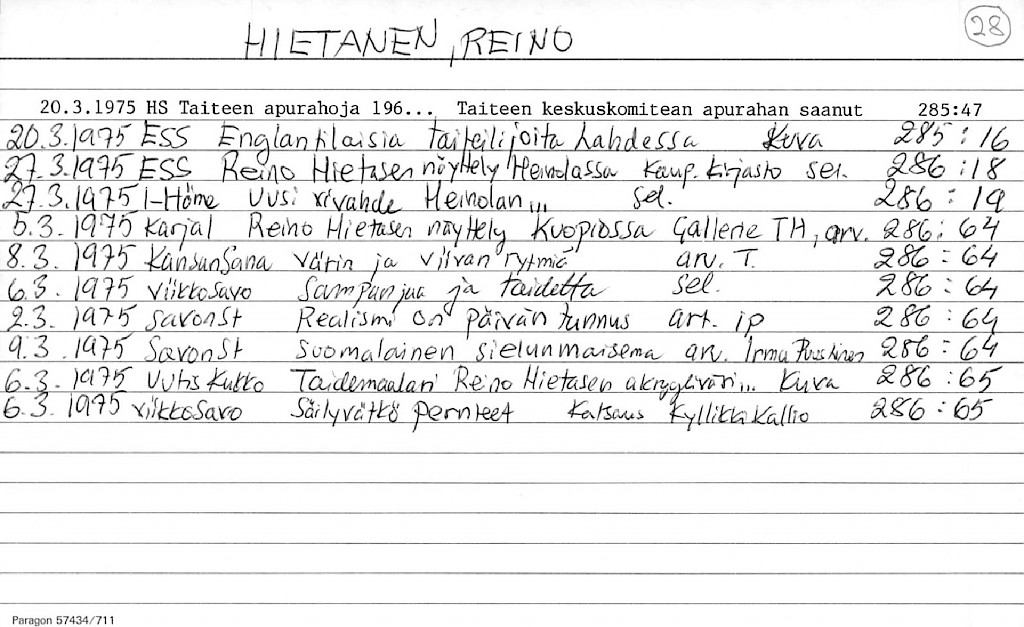 28
HIETANEN, REINO
20.3.1975 HS Taiteen apurahoja 196... Taiteen keskuskomitean apurahan saanut 285:47
20.3.1975 ESS Englantilaisia taiteilijoita Lahdessa Kuva 285:16
27.3.1975 ESS Reino Hietasen näyttely Heinolassa kaup. kirjasto sel. 286:18
27.3.1975 I-Häme Uusi vivahde Heinolan... sel. 286:19
5.3.1975 Karjal Reino Hietasen näyttely Kuopiossa Gallerie TH, arv. 286:64
8.3.1975 KansanSana Värin ja viivan rytmiä arv. T. 286:64
6.3.1975 ViikkoSavo Sampanjaa ja taidetta sel. 286:64
2.3.1975 SavonSt Realismi on päivän tunnus art. ip 286:64
9.3.1975 SavonSt Suomalainen sielunmaisema arv. Irma Puustinen 286:64
6.3.1975 UutisKukko Taidemaalari Reino Hietasen akryyliväri... Kuva 286:65
6.3.1975 ViikkoSavo Säilyvätkö perinteet Katsaus Kyllikki Kallio 286:65
Paragon 57434/711